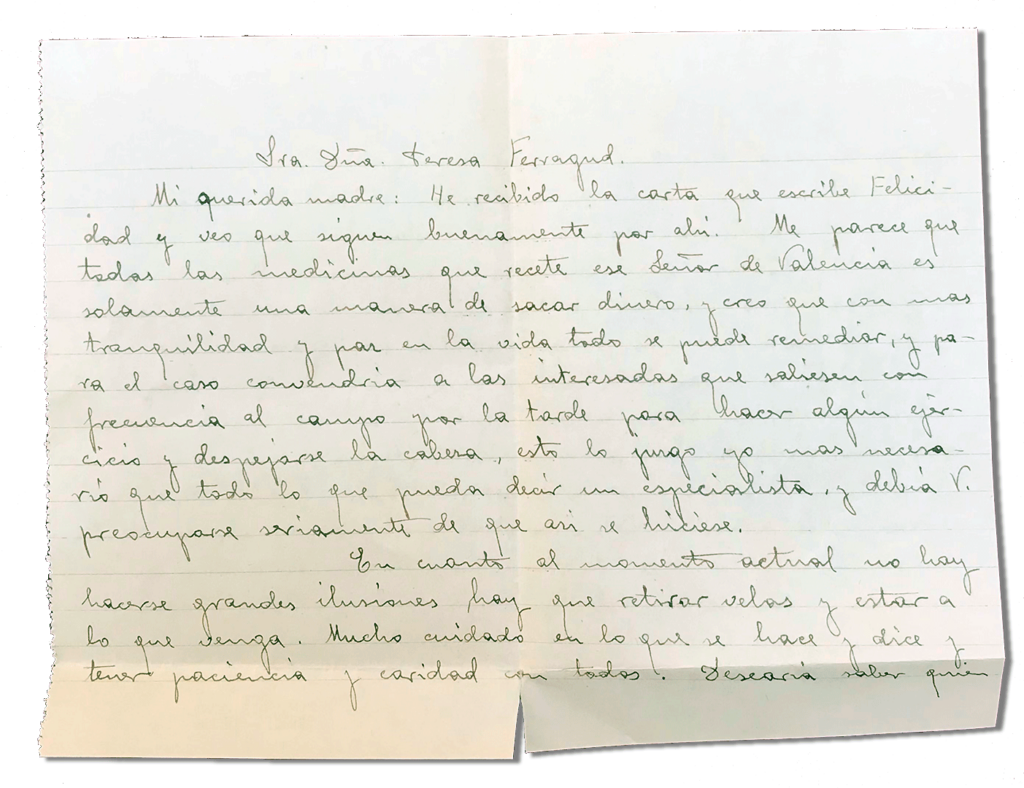 Sra. Dña. Teresa Ferragud.
Mi querida madre: He recibido la carta que escribe Felici-
dad y veo que siguen buenamente por ahí. Me parece que
todas las medicinas que recete ese Señor de Valencia es
solamente una manera de sacar dinero, y creo que con mas
tranquilidad y paz en la vida todo se puede remediar, y pa-
ra el caso convendria a las interesadas que saliesen con
frecuencia al campo por la tarde para hacer algún ejer-
cicio y despejarse la cabesa, esto lo jusgo yo mas necesa-
rio que todo lo que pueda decir un especialista, y debia V.
preocuparse seriamente de que asi se hiciese.
En cuanto al momento actual no hay
hacerse grandes ilusiones hay que retirar velas y estar a
lo que venga. Mucho cuidado en lo que se hace y dice y
tener paciencia y caridad con todos. Desearia saber quien